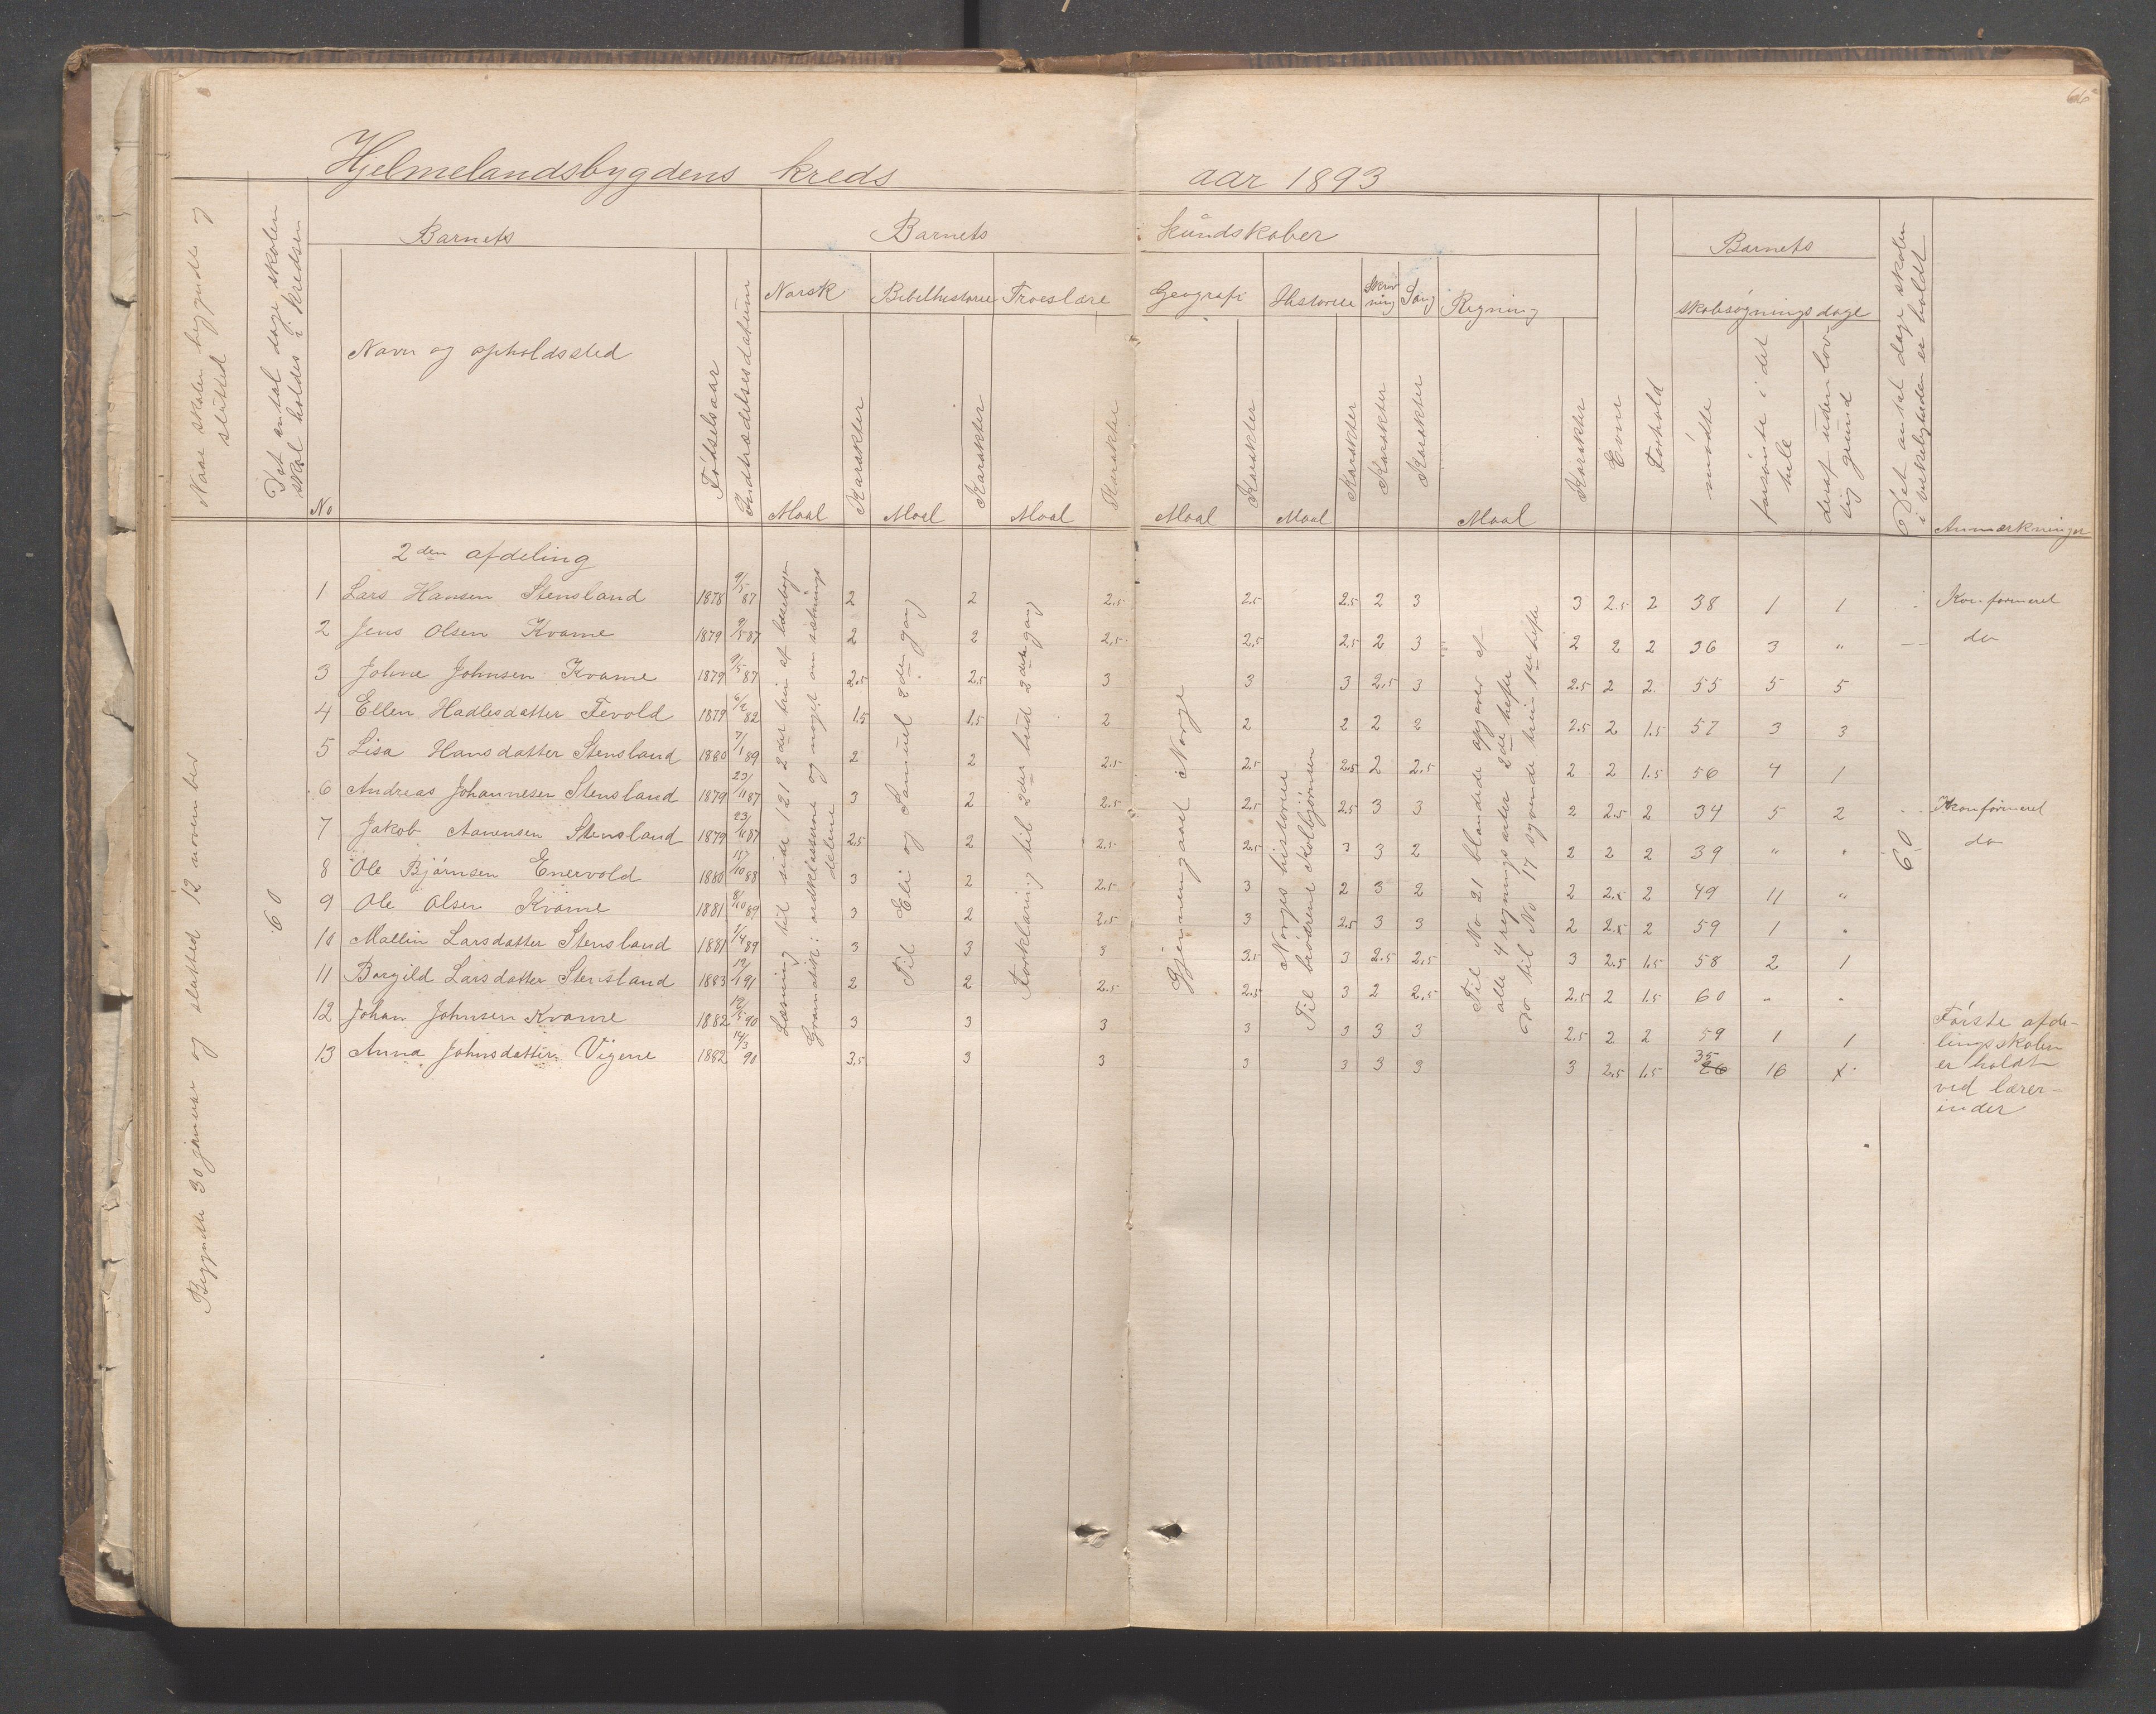 66
Hjelmelandsbygdens kreds aar 1893
Naar skolen begyndte og slutted
Det antal dage skolen skal holdes i kredsen
Barnets
Barnets kundskaber
Barnets
No
Navn og opholdssted
Fødselsaar
Indtrædelsesdatum
Norsk
Bibelhistorie
Troeslære
Geografi
Historie
Skrivning
Sang
Regning
Maal Karakter Maal Karakter Maal Karakter Maal Karakter Maal Karakter Karakter Karakter Maal Karakter
Evne
Forhold
skolesøgningsdage
mødte
forsømte i det hele
deraf uden lovlig grund
Det antal dage skolen i virkeligheden er holdt
Anmærkninger
Begyndte 30 januar og slutted 12 november
60
2den afdeling
Læsning til side 121 2det trin af læsebogen
Gramatik: ordklasserne og noget om sætningsdelene
Til Eli og Samuel 2den gang
Forklaring til 2det bud 2den gang
Gjennemgaaet Norge
Norges historie
Til brødrene Kolbjørnsen
Til No 21 blandede opgaver af
alle 4 regningsarter 2de hefte
do til No 17 syvende trin 1ste hefte
60
1 Lars Hansen Stensland 1878 9/5 87 2 2 2.5 2.5 2.5 2 3 3 2.5 2 38 1 1 Konfirmeret
2 Jens Olsen Kvame 1879 9/5 87 2 2 2,5 2,5 2,5 2 3 2 2 2 36 3 " do
3 Johne Johnsen Kvame 1879 9/5 87 2.5 2.5 3 3 3 2,5 3 2.5 2 2 55 5 5
4 Ellen Hadlesdatter Tevold 1879 6/2 82 1.5 1.5 2 2 2 2 2 2.5 2 1.5 57 3 3
5 Lisa Hansdatter Stensland 1880 7/1 89 2 2 2.5 2.5 2.5 2 2,5 2 2 1.5 56 4 1
6 Andreas Johannesen Stensland 1879 23/11 87 3 2 2.5 2.5 2.5 3 3 2 2.5 2 34 5 2 Konfirmeret
7 Jakob Aanensen Stensland 1879 23/11 87 2.5 2 2.5 2.5 3 3 2 2 2 2 39 " " do
8 Ole Bjørnsen Enervold 1880 15/10 88 3 2 2.5 3 2 3 2 2 2.5 2 49 11 "
9 Ole Olsen Kvame 1881 8/10 89 3 2 2,5 3 2.5 3 3 2 2.5 2 59 1 "
10 Mallin Larsdatter Stensland 1881 1/4 89 3 3 3 3.5 3 2.5 2,5 3 2.5 1.5 58 2 1
11 Borgild Larsdatter Stensland 1883 12/1 91 2 2 2.5 2.5 3 2 2,5 2.5 2 1.5 60 " "
12 Johan Johnsen Kvame 1882 12/5 90 3 3 3 3 3 3 3 2.5 2 2 59 1 1
13 Anna Johnsdatter Vigene 1882 14/3 90 3.5 3 3 3 3 3 3 3 2.5 1.5 35 26 16 x
Første afdelingsskolen
er holdt
ved lærer-
inder